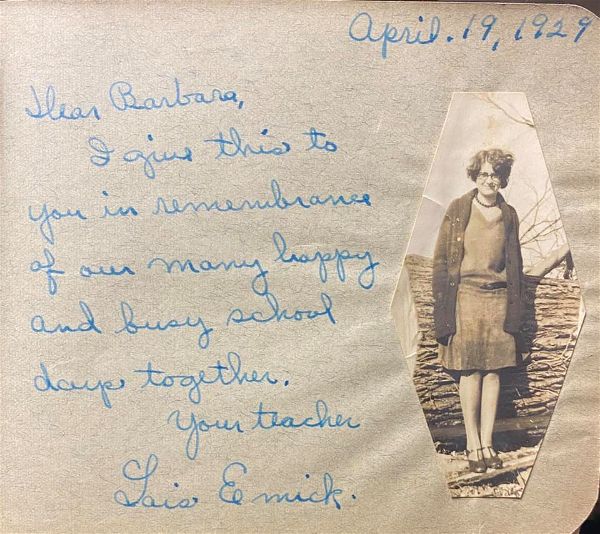 April. 19, 1929
Dear Barbara,
I give this to
you in remembrance
of our many happy
and busy school
days together.
Your teacher
Lois Emick.